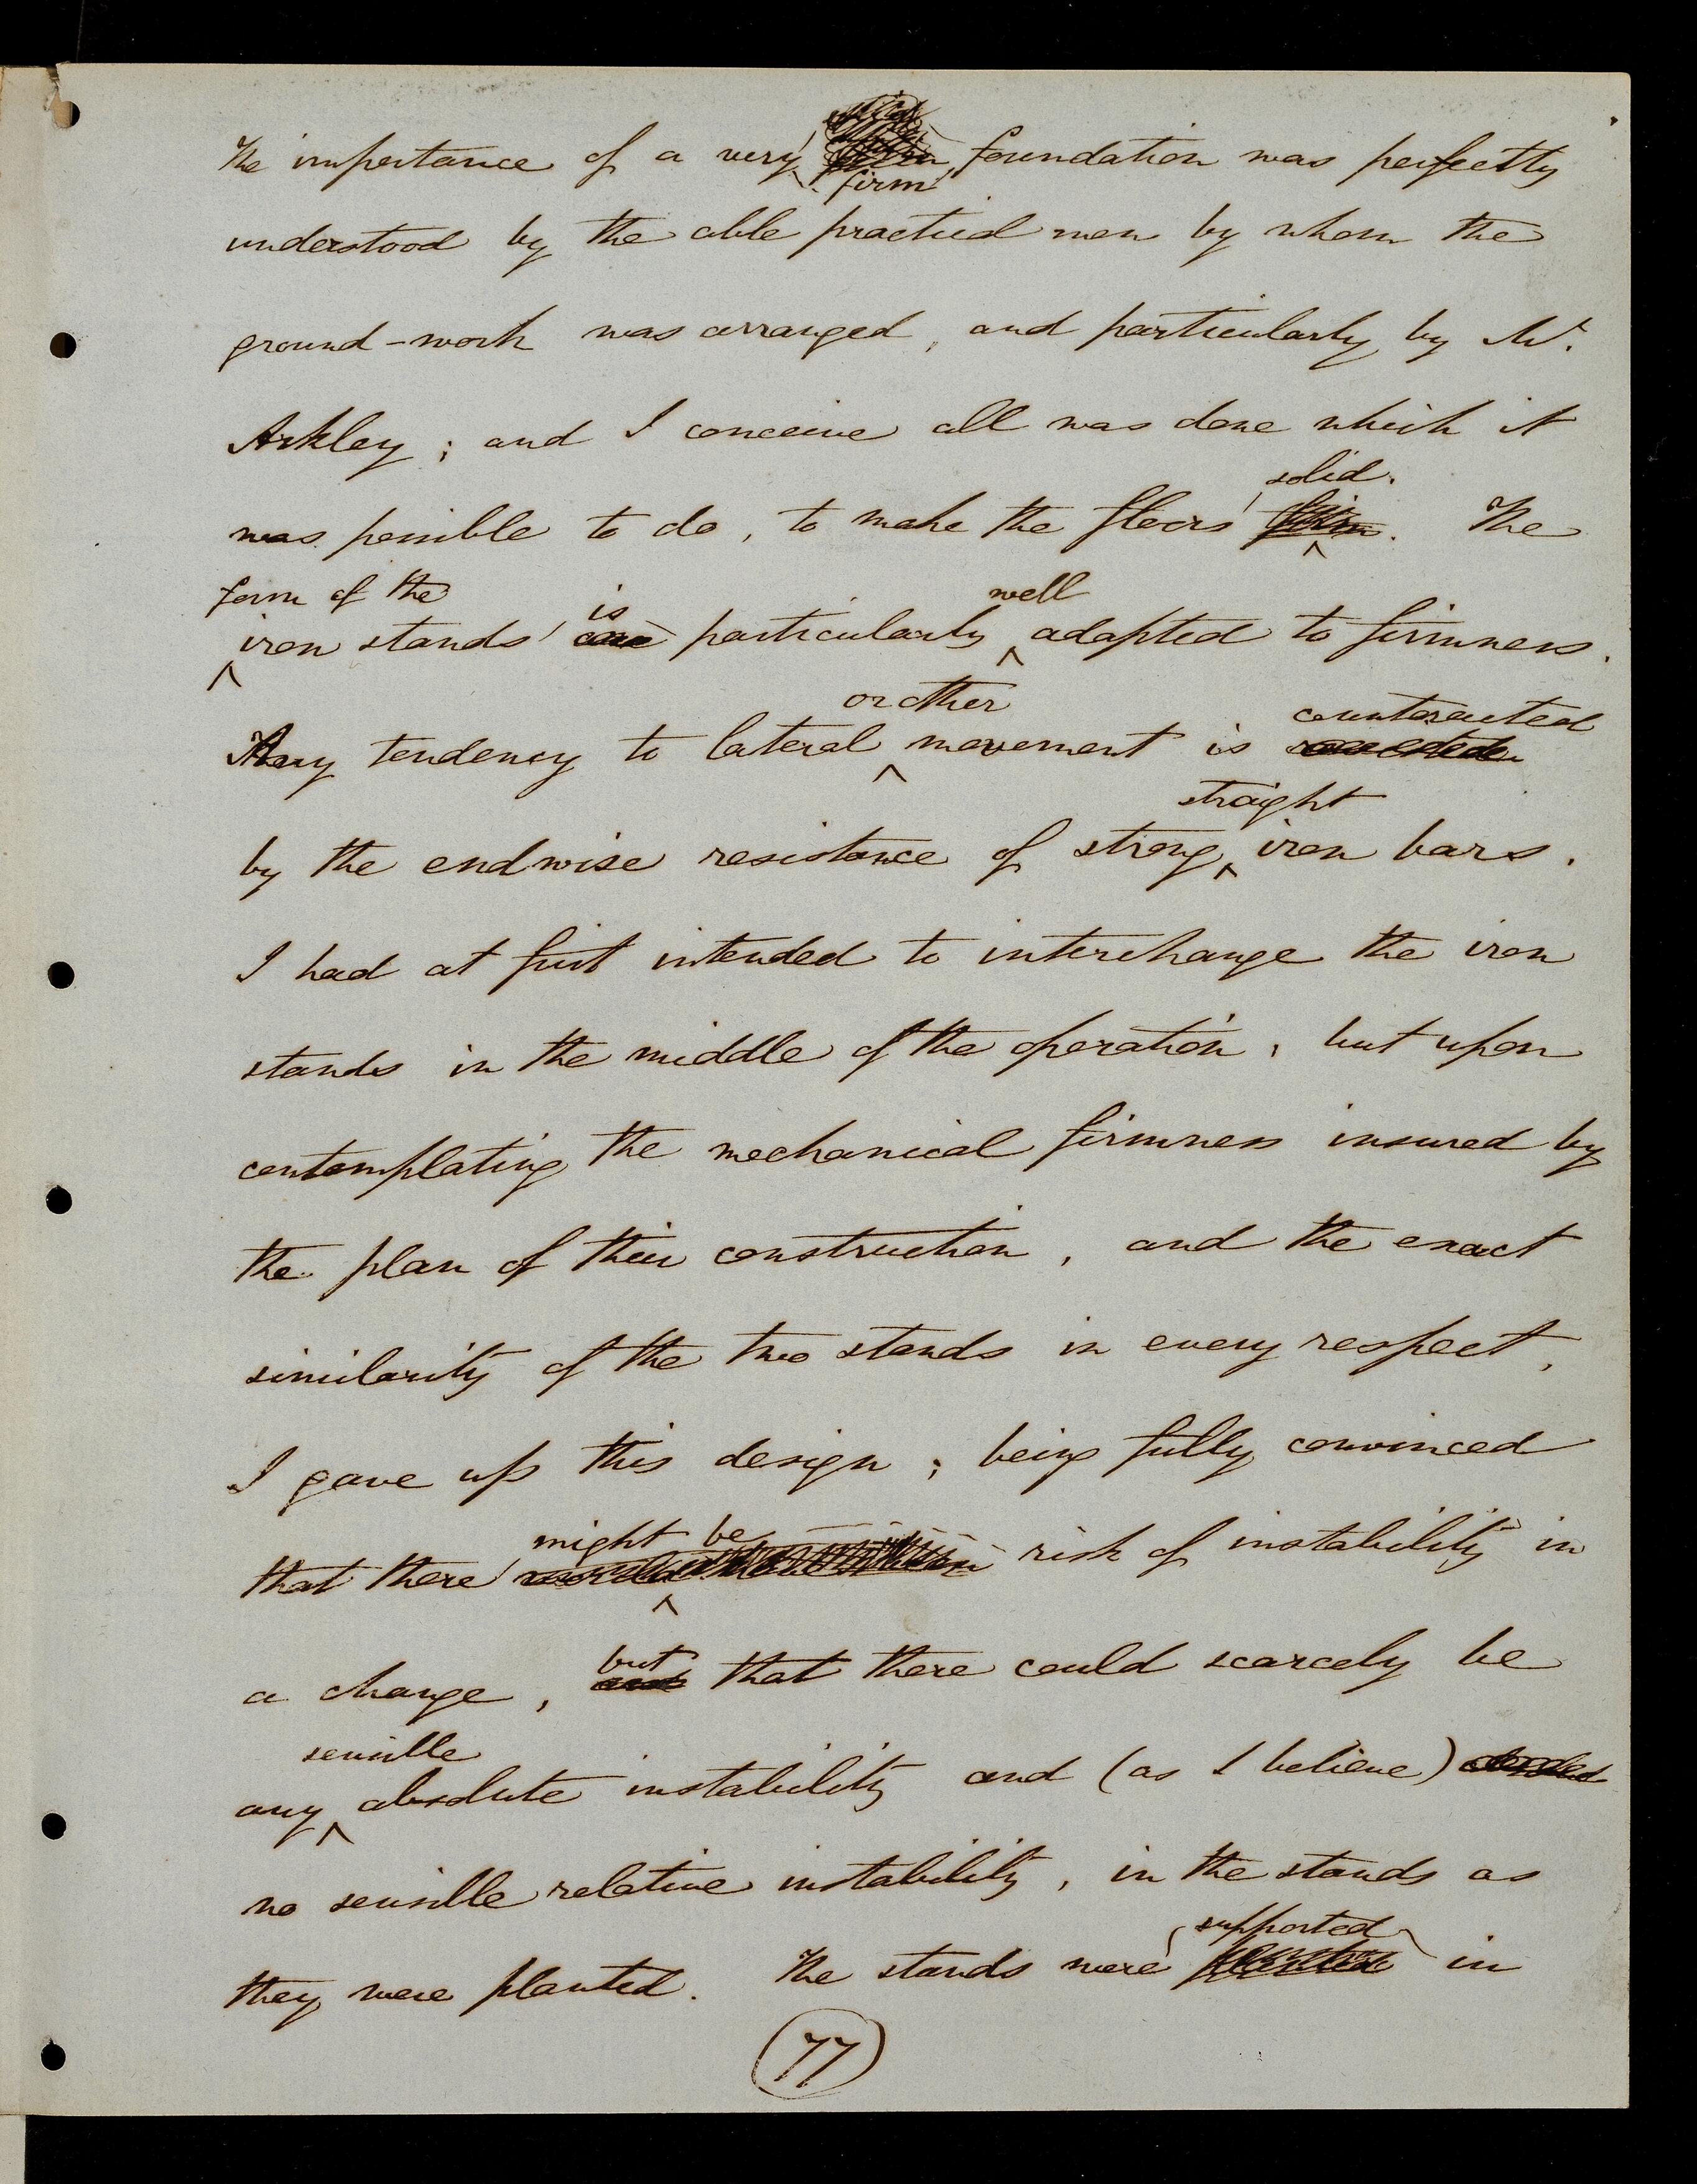 The importance of a very firm foundation was perfectly
understood by the able practical men by whom the
ground-work was arranged, and particularly by Mr.
Arkley; and I conceive all was done which it
solid.
was possible to do, to make the floors firm. The
form of the is well
iron stands are particularly adapted to firmness.
or other counteracted
Any tendency to lateral movement is
straight
by the endwise resistance of strong iron bars.
I had at first intended to interchange the iron
stands in the middle of the operation, but upon
contemplating the mechanical firmness insured by
the plan of their construction, and the exact
similarity of the two stands in every respect,
I gave up this design; being fully convinced
might be
that there risk of instability in
but
a change, and that there could scarcely be
sensible
any absolute instability and (as I believe)
no sensible relative instability, in the stands as
supported
they were planted. The stands were planted in
77